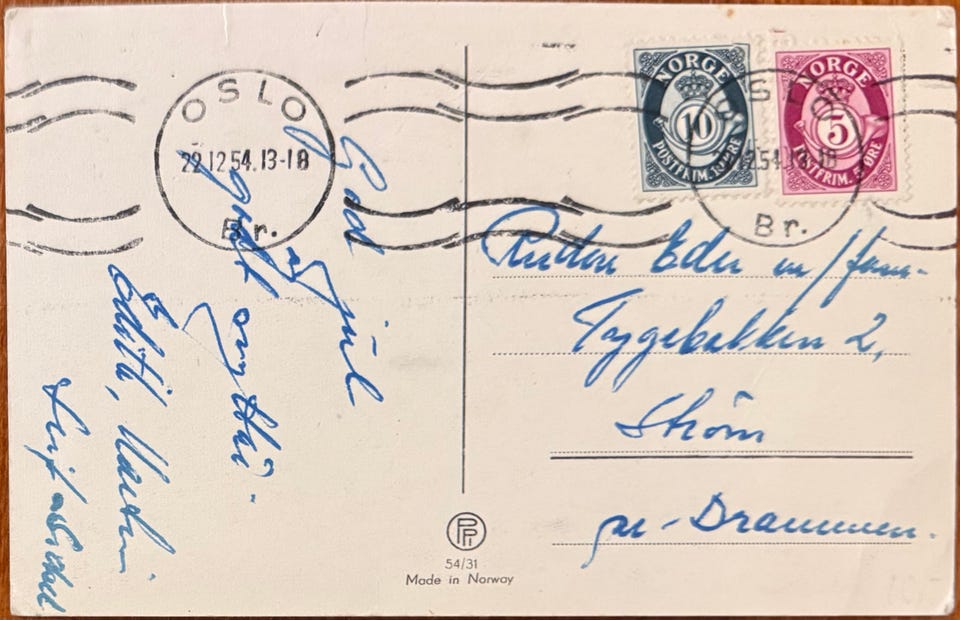 OSLO
22.12.54.13-18
Br.
God jul
og
godt nyttår
Edith,
NORGE
10
POSTFRIM. 10 ØRE
NORGE
5
POSTFRIM. 5 ØRE
OSLO
12.54.13-18
Br.
Eder m/fam.
Tyggebakken 2,
Strøm
pr. Drammen.
PP
54/31
Made in Norway